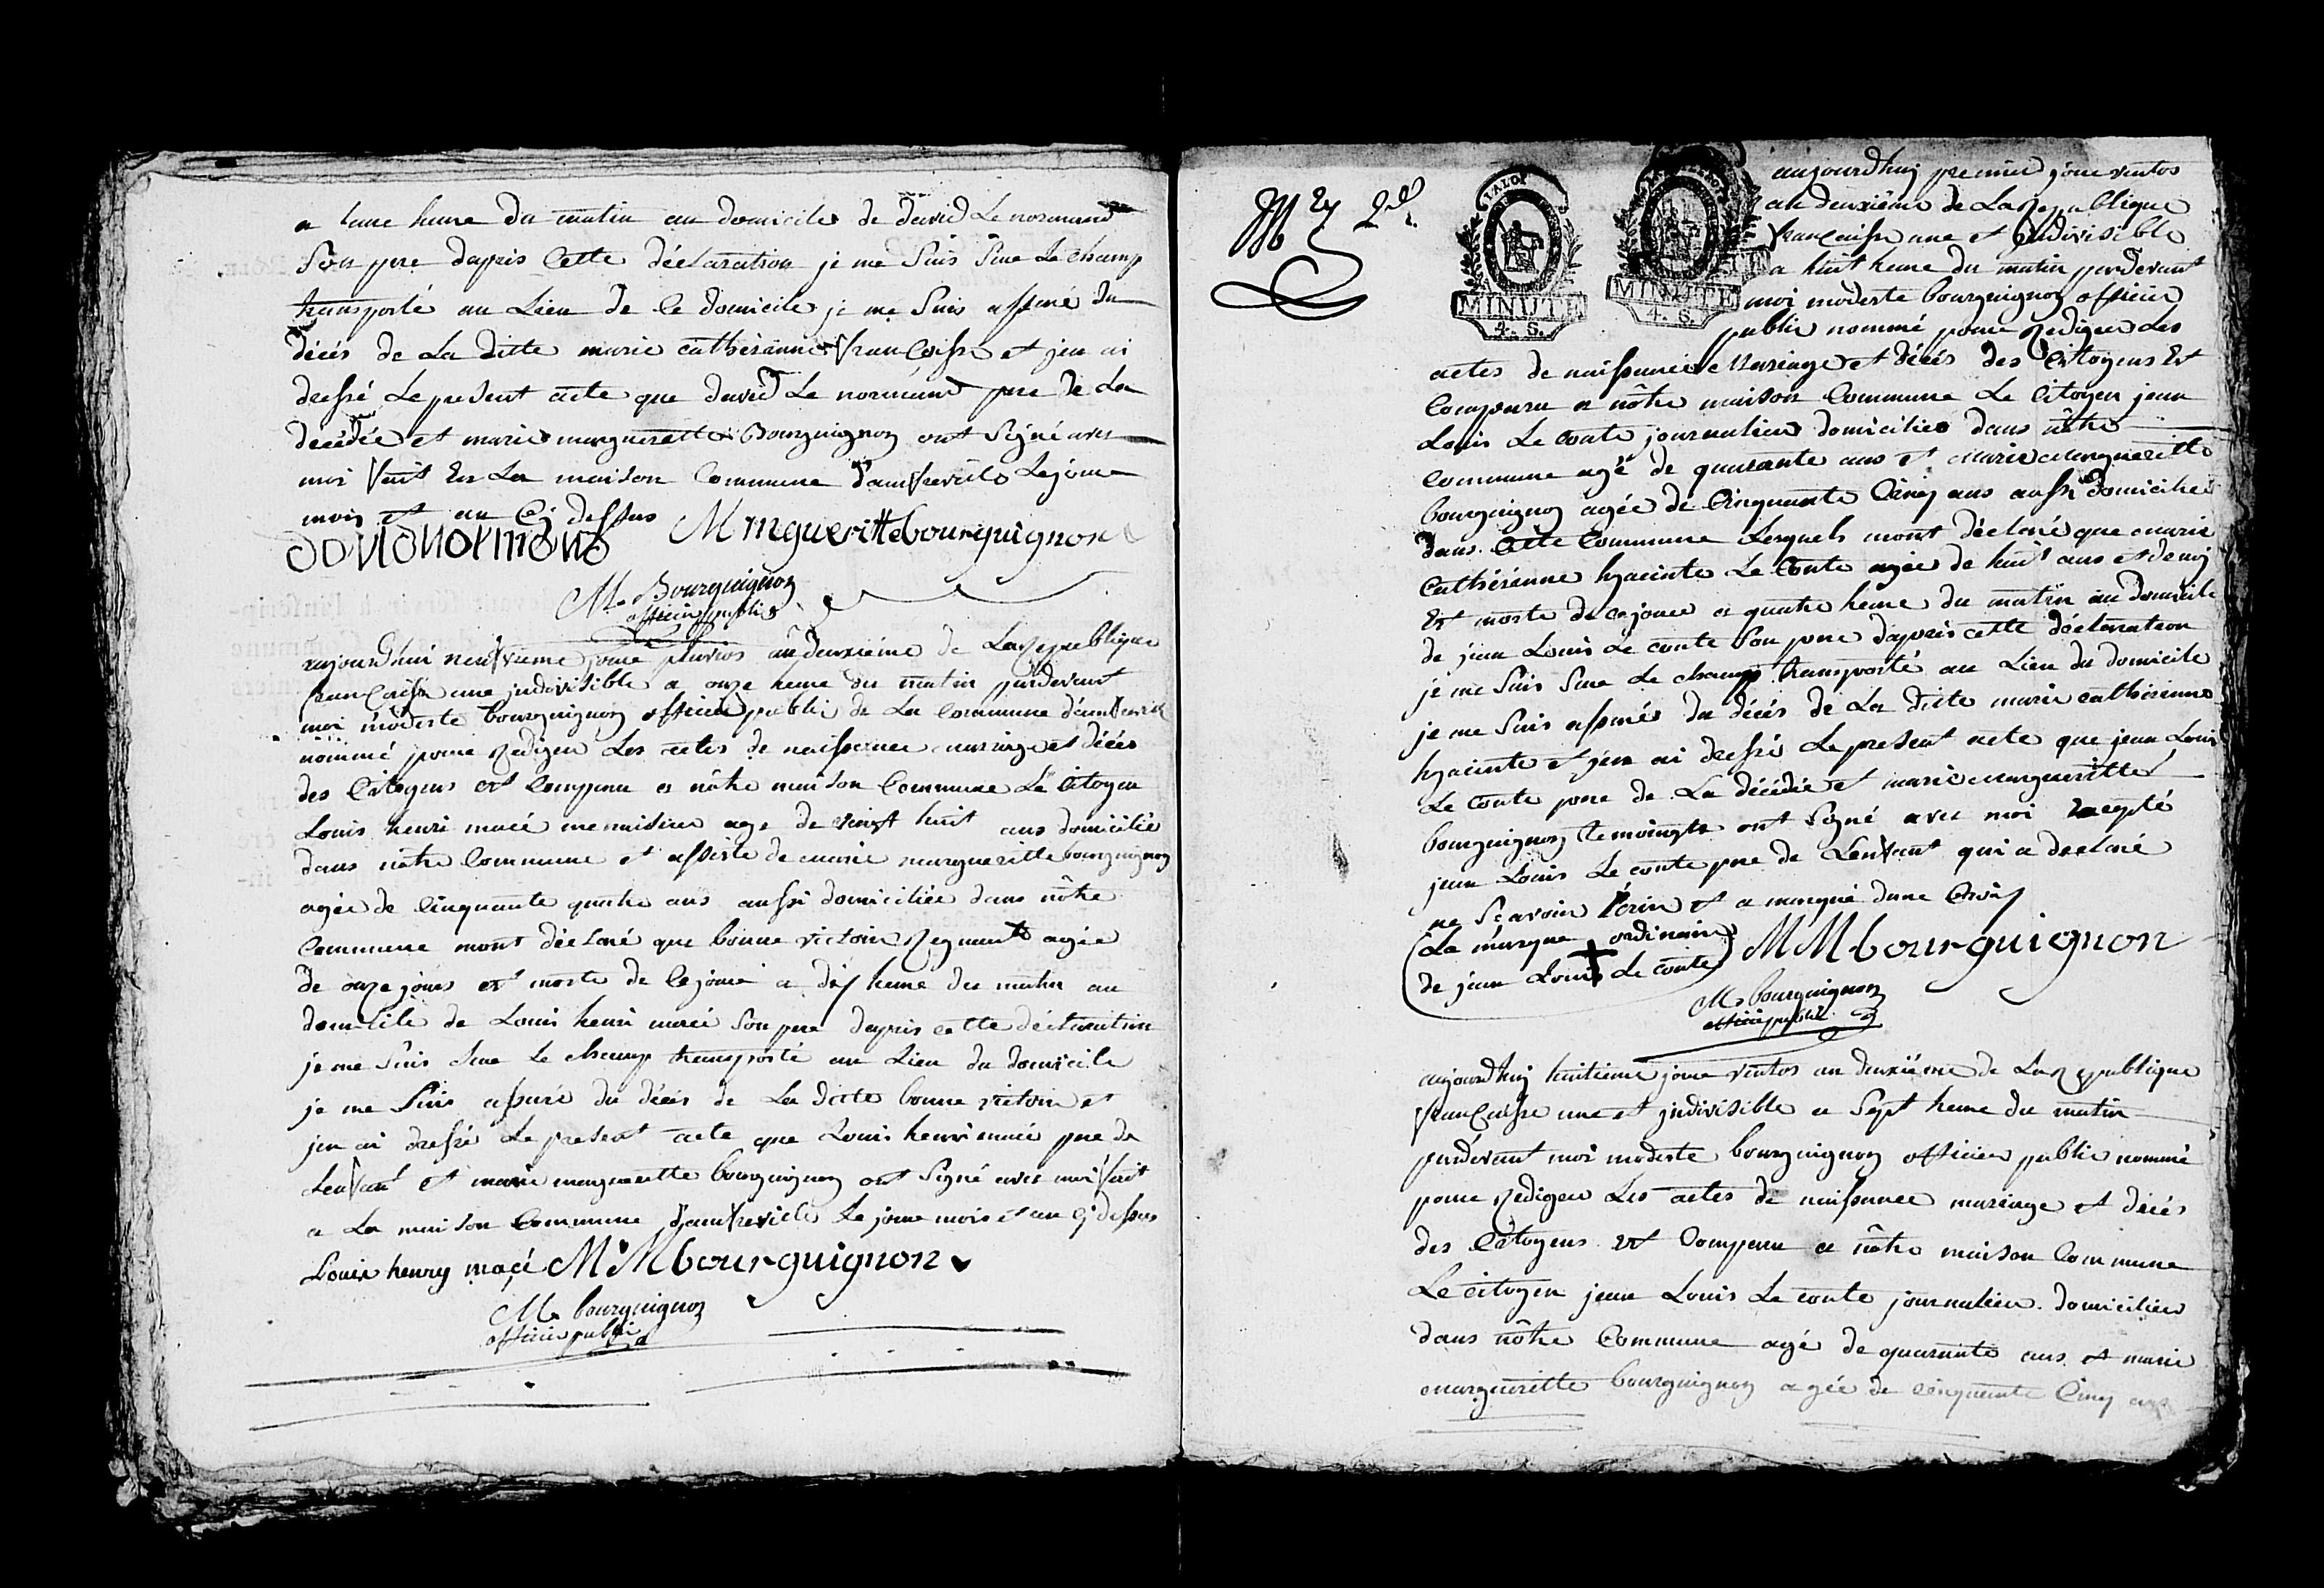 a lune heure du matin au domicile de david Le normand
Son pere dapres Cette déclaration je me Suis Sur Le champ
transporté au Lieu de Ce domicile je me Suis assuré du
décés de La ditte marie cathérinne francoisse et jen ai
dressé Le present acte que david Le normand pere de La
decédée et marie margueritte Bourguignon ont Signé avec
moi fait En La maison Commune d'amfreville Lejour
mois et an Cj dessus
davidnormand Mmgueritte bourguignon
M. Bourguignon
officier public
aujourd'hui neufvieme jour pluvios an deuxiéme de La Republique
francaisse une jndivisible a onze heure du matin pardevant
moi modeste bourguignon officier public de La Commune d'amfreville
nommé pour Rediger Les actes de naissance mariage et décés
des Citoyens est Comparu a nôtre maison Commune Le Citoyen
Louis henri macé menuisier age de vingt huit ans domicilié
dans nôtre Commune et assisté de marie margueritte bourguignon
agée de Cinquante quatre ans aussi domiciliée dans nôtre
Commune mont déclaré que bonne victoire agée
de onze jours est morte de Cejour a dix heure du matin au
domicile de Louis henri macé Son pere dapres cette déclaration
je me Suis Sur Le champ transporté au Lieu du domicile
je me Suis assuré du décés de La ditte bonne victoire et
jen ai dressé Le present acte que Louis henri macé pere de
Lenfant et marie margueritte bourguignon ont Signé avec moi fait
a La maison Commune d'amfreville Le jour mois et an Cj dessus
Louis henry macé M M bourguignon
M. bourguignon
officier public
MINUTE
4. S.
MINUTE
4. S.
aujourdhuj premier jour ventos
an deuxiême de La Republique
francaisse une et jndivisible
a huit heure du matin pardevant
moi modeste bourguignon officier
public nommé pour Rediger Les
actes de naissance Mariage et décés des Cittoyens Est
Comparu a nôtre maison Commune Le Citoyen jean
Louis Le conte journalier domicilié dans nôtre
Commune agé de quarante ans et marie margueritte
bourguignon agée de Cinquante Cinq ans aussi domiciliée
dans Cette Commune Lesquels mont déclaré que marie
Cathérinne hyacinte Le Conte agée de huit ans et demj
Est morte de cejour a quatre heure du matin au domicile
de jean Louis Le conte Son pere dapres cette déclaration
je me Suis Sur Le champ transporté au Lieu du domicile
je me Suis assuré du décés de La ditte marie cathérinne
hyacinte et jen ai dressé Le present acte que jean Louis
Le conte pere de La décédée et marie margueritte
bourguignon temoingts ont Signé avec moi Excepté
jean Louis Le conte pere de Lenfant qui a declaré
ne Sçavoir Ecrire et a marqué dune Croix
(La marque ordinaire
de jean Louis Le conte) M M bourguignon
M. bourguignon
officier public
aujourdhuj huitieme jour ventos an deuxiéme de La Republique
francaisse une et jndivisible a Sept heure du matin
pardevant moi modeste bourguignon officier public nommé
pour Rediger Les actes de naissance mariage et décés
des Citoyens est Comparu a nôtre maison Commune
Le citoyen jean Louis Le conte journalier domicilier
dans nôtre Commune agé de quarante ans et marie
margueritte bourguignon agée de cinquante Cinq ans